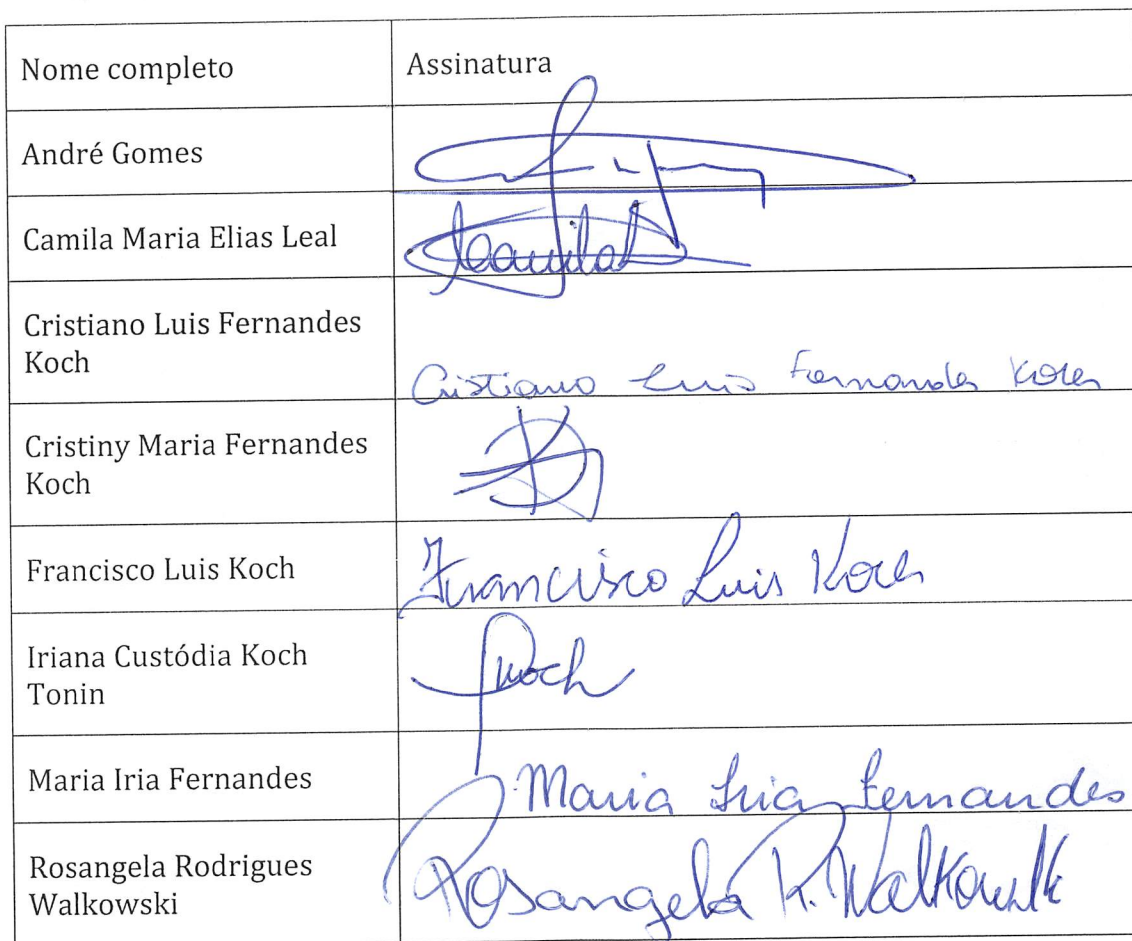 Nome completo
Assinatura
André Gomes
Camila Maria Elias Leal
Camila
Cristiano Luis Fernandes
Koch
Cristiano Luis Fernandes Koch
Cristiny Maria Fernandes
Koch
Francisco Luis Koch
Francisco Luis Koch
Iriana Custódia Koch
Tonin
Koch
Maria Iria Fernandes
Maria Iria Fernandes
Rosangela Rodrigues
Walkowski
Rosangela R. Walkowski